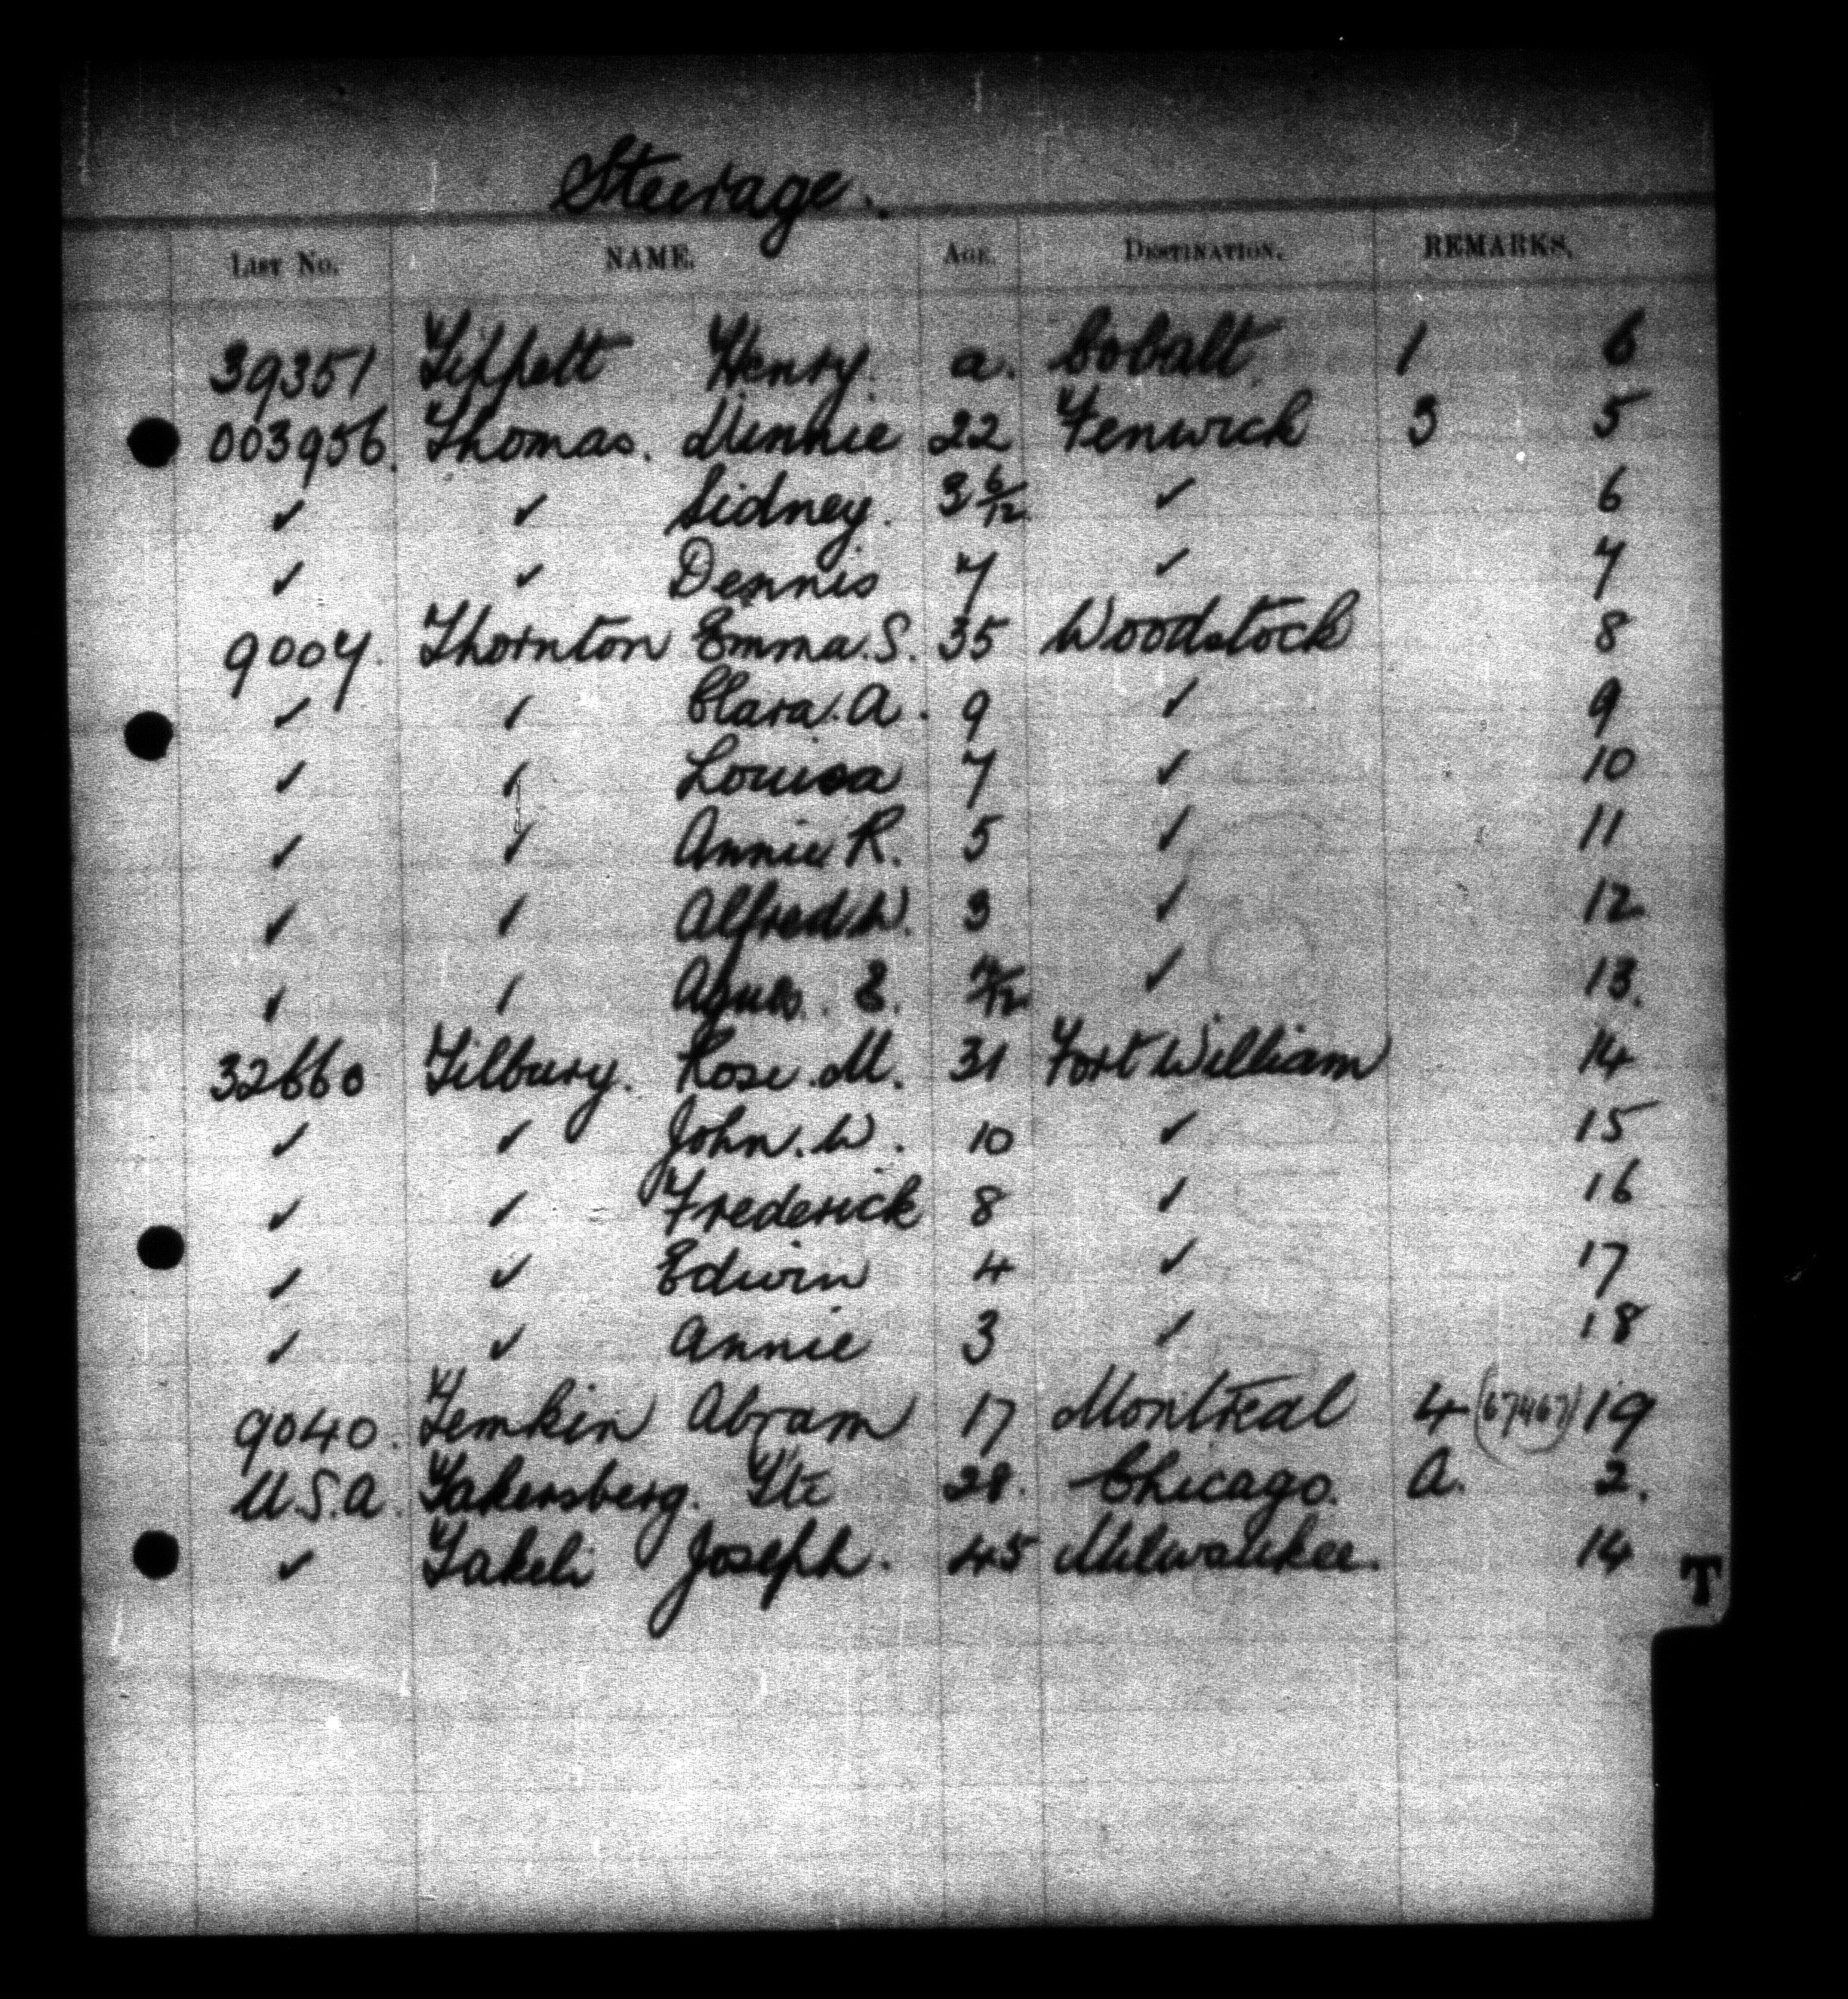 Steerage.
List No. NAME. Age. Destination. REMARKS.
39351 Tippett Henry. a. Cobalt. 1 6
003956. Thomas. Minnie 22 Fenwick 3 5
✓ ✓ Sidney. 3 6/12 ✓ 6
✓ ✓ Dennis 7 ✓ 7
9007. Thornton Emma.S. 35 Woodstock 8
✓ ✓ Clara.A. 9 ✓ 9
✓ ✓ Louisa 7 ✓ 10
✓ ✓ Annie R. 5 ✓ 11
✓ ✓ Alfred W. 3 ✓ 12
✓ ✓ Agnes. E. /12 ✓ 13.
32660 Tilbury. Rose.M. 31 Fort William 14
✓ ✓ John.W. 10 ✓ 15
✓ ✓ Frederick 8 ✓ 16
✓ ✓ Edwin 4 ✓ 17
✓ ✓ Annie 3 ✓ 18
9040. Temkin Abram 17 Montreal 4 (67467) 19
U.S.A. Takersberg. 28. Chicago. A. 2.
✓ Takeli Joseph. 45 Milwaukee. 14
T